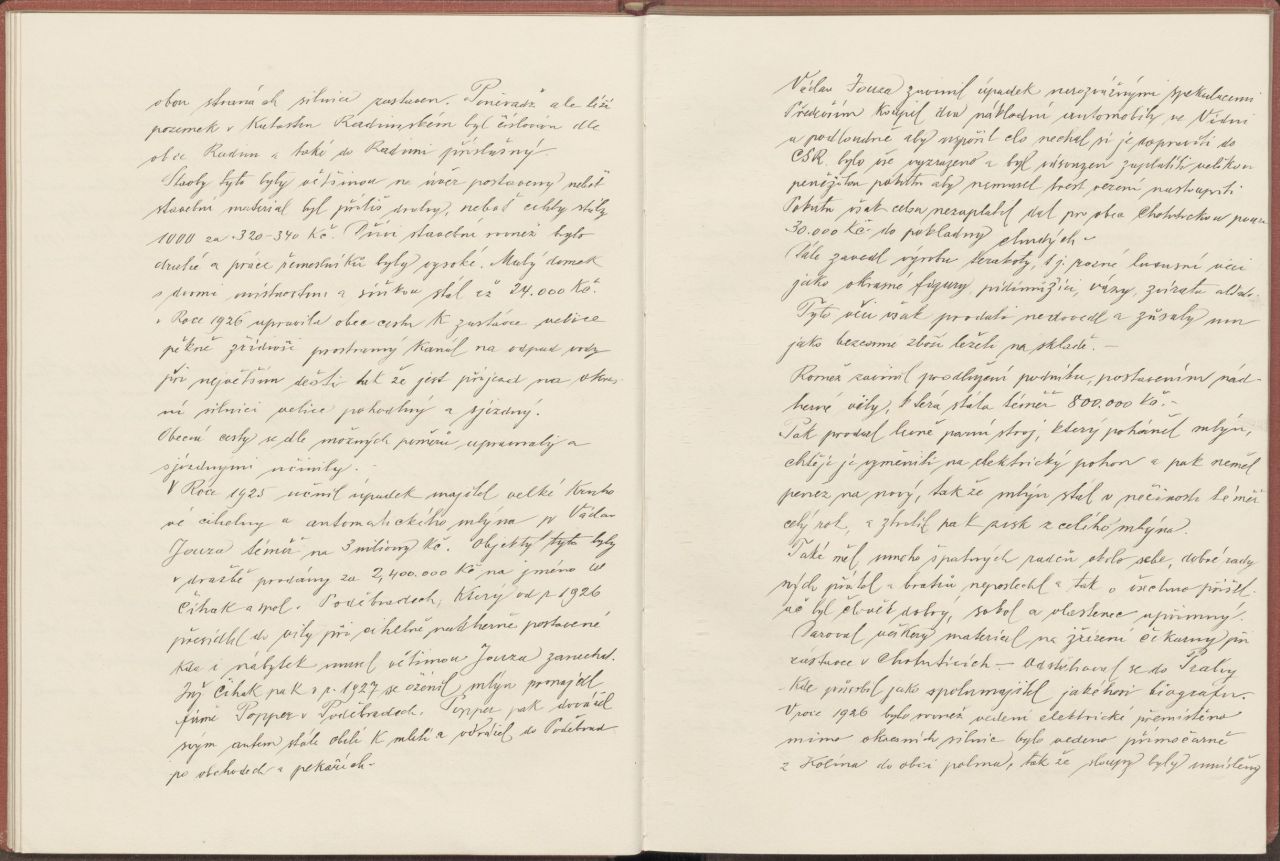 obou stranách silnice zastaven. Poněvadž ale leží
pozemek v Katastru Radimském byl číslován dle
obce Radim a také do Radimi příslušný.
Stavby tyto byly většinou na úvěr postaveny neboť
stavební materiál byl příliš drahý, neboť cihly stály
1000 za 320-340 Kč. Dříví stavební rovněž bylo
drahé a práce řemeslníků byly vysoké. Malý domek
s dvomi místnostmi a síňkou stál až 24.000 Kč.
v Roce 1926 upravila obec cestu K zastávce velice
pěkně zřídivši prostranný Kanál na odpad vody
při největším dešti tak že jest příjezd na okres
ní silnici velice pohodlný a sjízdný.
Obecní cesty se dle možných poměrů upravovaly a
sjízdnými učinily.
V Roce 1925 učinil úpadek majitel velké Kruho
vé cihelny a automatického mlýna p. Václav
Jouza téměř na 3 miliony Kč. Objekty tyto byly
v dražbě prodány za 2,400.000 Kč na jméno
Čihak a spol. Poděbradech, Který od r. 1926
přesídlil do vily při cihelně nádherně postavené
Kde i nábytek musel většinou Jouza zanechat.
Čihak pak v r. 1927 se oženil mlýn pronajal
firmě Popper v Poděbradech. Popper pak dovážel
svým autem stále obilí K mletí a odvážel do Poděbrad
po obchodech a pekařích.
Václav Jouza zavinil úpadek nerozvážnými spekulacemi
Předevšim Koupil dva nákladní automobily ve Vídni
a podloudně aby uspořil clo nechal si je dopraviti do
ČSR. bylo vše vyzrazeno a byl odsouzen zaplatiti velikou
peněžitou pokutu aby nemusel trest vězení nastoupiti
Pokutu však celou nezaplatil dal pro obec Chotutickou pouze
30.000 Kč do pokladny chudých.
Dále zavedl výrobu terakoty, t.j. různé luxusní věci
jako okrasné figury, pidimužíci, vázy, zvířata atd.
Tyto věci však prodati nedovedl a zůstaly mu
jako bezcenné zboží ležeti na skladě. —
Rovněž zavinil prodlužení podniku, postavením nád-
herné vily, která stála téměř 800.000 Kč.-
Pak prodal levně parní stroj, který poháněl mlýn,
chtěje jej vyměniti na elektrický pohon a pak neměl
peněz na nový, takže mlýn stál v nečinosti téměř
celý rok, a ztratil pak zisk z celého mlýna.
Také měl mnoho špatných radců okolo sebe, dobré rady
ných přátel a bratrů neposlechl a tak o všechno přišel.
ač byl člověk dobrý, sokol a vlastenec upřímný.
Daroval veškerý materiál na zřízení čekárny při
zastavce v Chotuticích. — Odstěhoval se do Prahy
Kde působil jako spolumajitel jakéhosi biografu.
V roce 1926 bylo rovněž vedení elektrické přemístěno
mimo okresních silnic bylo vedeno přímočarně
z Kolína do obcí polma, tak že sloupy byly umístěny